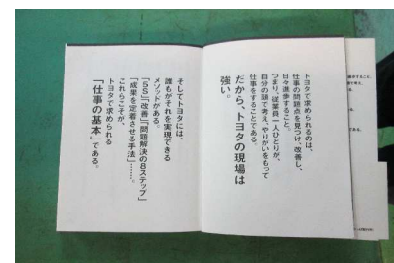 トヨタで求められるのは、
仕事の問題点を見つけ、改善し、
日々進歩すること。
つまり、従業員一人ひとりが、
自分の頭で考え、やりがいをもって
仕事をすることである。
だから、トヨタの現場は
強い。
そしてトヨタには、
誰もがそれを実現できる
メソッドがある。
「5S」「改善」「問題解決の8ステップ」
「成果を定着させる手法」……。
これらこそが、
トヨタで求められる
「仕事の基本」である。